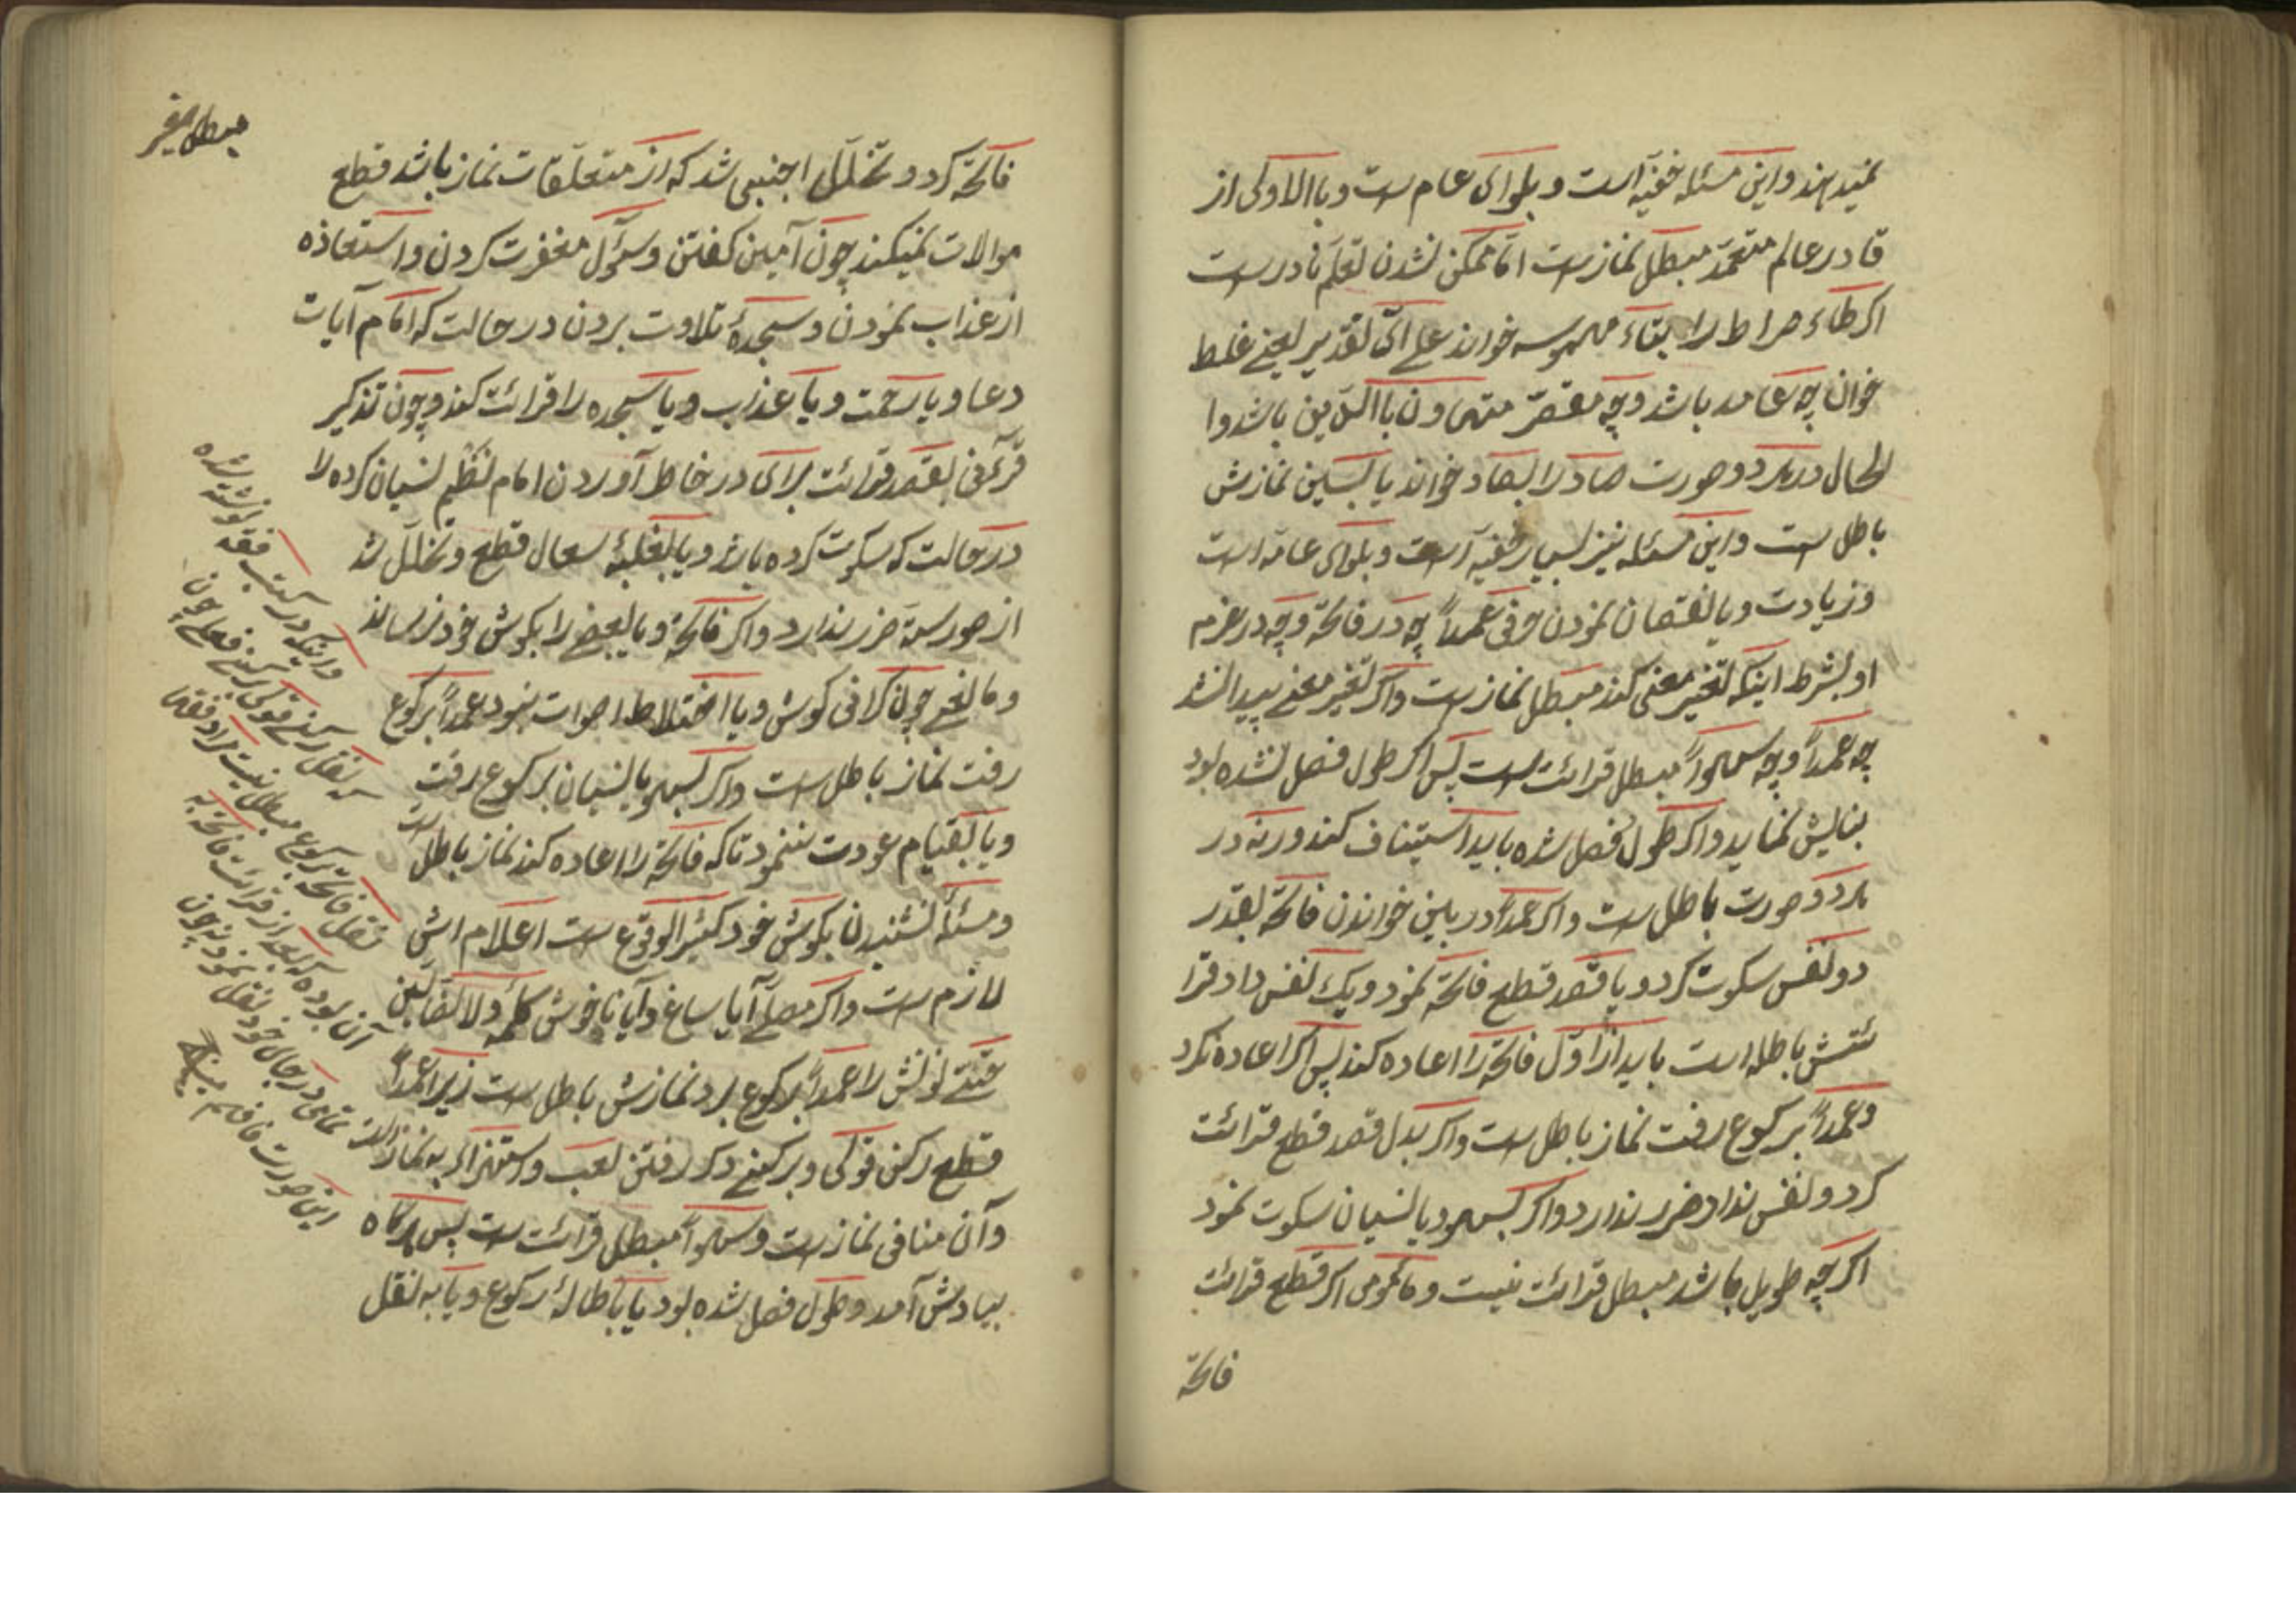 نمیدهند و این مسئله خفیّه است و بلوای عام است و باالاولی از
قادر عالم متعمّد مبطل نماز است امّا ممکن نشدن تعلّم نادر است
اکر طاء صراط را بتاء مهموسه خواند علی ایّ تقدیر یعنی غلط
خوان چه عامد باشد و چه مقصّر متهاون باالدّین باشد وا
لحال در هر دو صورت صاد را بصاد خواند یا بسین نمازش
باطل است و این مسئله نیز بسیار خفیّه است و بلوای عامّه است
و زیادت و یا نقصان نمودن حرفی عمداً چه در فاتحه و چه در غیرم
او بشرط اینکه تغییر معنی کند مبطل نماز است و اکر تغییر معنی پیدا نشد
چه عمداً و چه سهواً مبطل قرائت است پس اکر طول فصل نشده بود
بنایش نماید و اکر طول فصل شده باید استیناف کند ورنه در
هر دو صورت باطل است و اکر عمداً در بین خواندن فاتحه بقدر
دو نفس سکوت کرد و یا قصد قطع فاتحه نمود و یک نفس داد قرا
ئتش باطله است باید از اوّل فاتحه را اعاده کند پس اکر اعاده نکرد
و عمداً برکوع رفت نماز باطل است و اکر بدل قصد قطع قرائت
کرد و نفس نداد ضرر ندارد و اکر بسهو و یا نسیان سکوت نمود
اکر چه طویل باشد مبطل قرائت نیست و مأمومی اکر قطع قرائت
فاتحه
فاتحه کرد و تخلّل اجنبی شد که از متعلّقات نماز باشد قطع
موالات نمیکند چون آمین کفتن و سؤل مغفرت کردن و استعاذه
از عذاب نمودن و سجدهٔ تلاوت بردن در حالت که امام آیات
دعا و یا رحمت و یا عذاب و یا سجده را قرائت کند و چون تذکیر
قرآنی بقصد قرائت برای در خاطر آوردن امام نظم نسیان کرده را
در حالت که سکوت کرده باشد و یا بغلبهٔ سعال قطع و تخلّل شد
از صور ستّه ضرر ندارد و اکر فاتحه و یا بعضی را بکوش خود نرساند
و مانعی چون کرانی کوش و یا اختلاط اصوات نبود عمداً برکوع
رفت نماز باطل است و اکر بسهو یا نسیان برکوع رفت
و یا بقیام عودت ننمود تا که فاتحه را اعاده کند نماز باطل است
و مسئلهٔ نشنیدن بکوش خود کثیر الوقوع است اعلام اش
لازم است و اکر مصلّی آیا ساغ و آیا ناخوش کلمهٔ ولاالضّالّین
را عمداً برکوع برد نمازش باطل است زیرا عمداً
قطع رکن قولی و برکنی دکر رفتن لعب و استهزاء به نماز است
و آن منافی نماز است و سهواً مبطل قرائت است پس هرکاه
بیادش آمد و طول فصل شده بود یا باطالهٔ رکوع و یا به نقل
و اینکه در کتب فقه نوشته شده
که نقل رکنی قولی برکنی فعلی چون
نقل فاتحه برکوع مبطل نیست مراد فقها
آن بوده که بعد از قرائت فاتحه به
تمامی در جای خود نقل نمود نه چون
این صورت فافهم